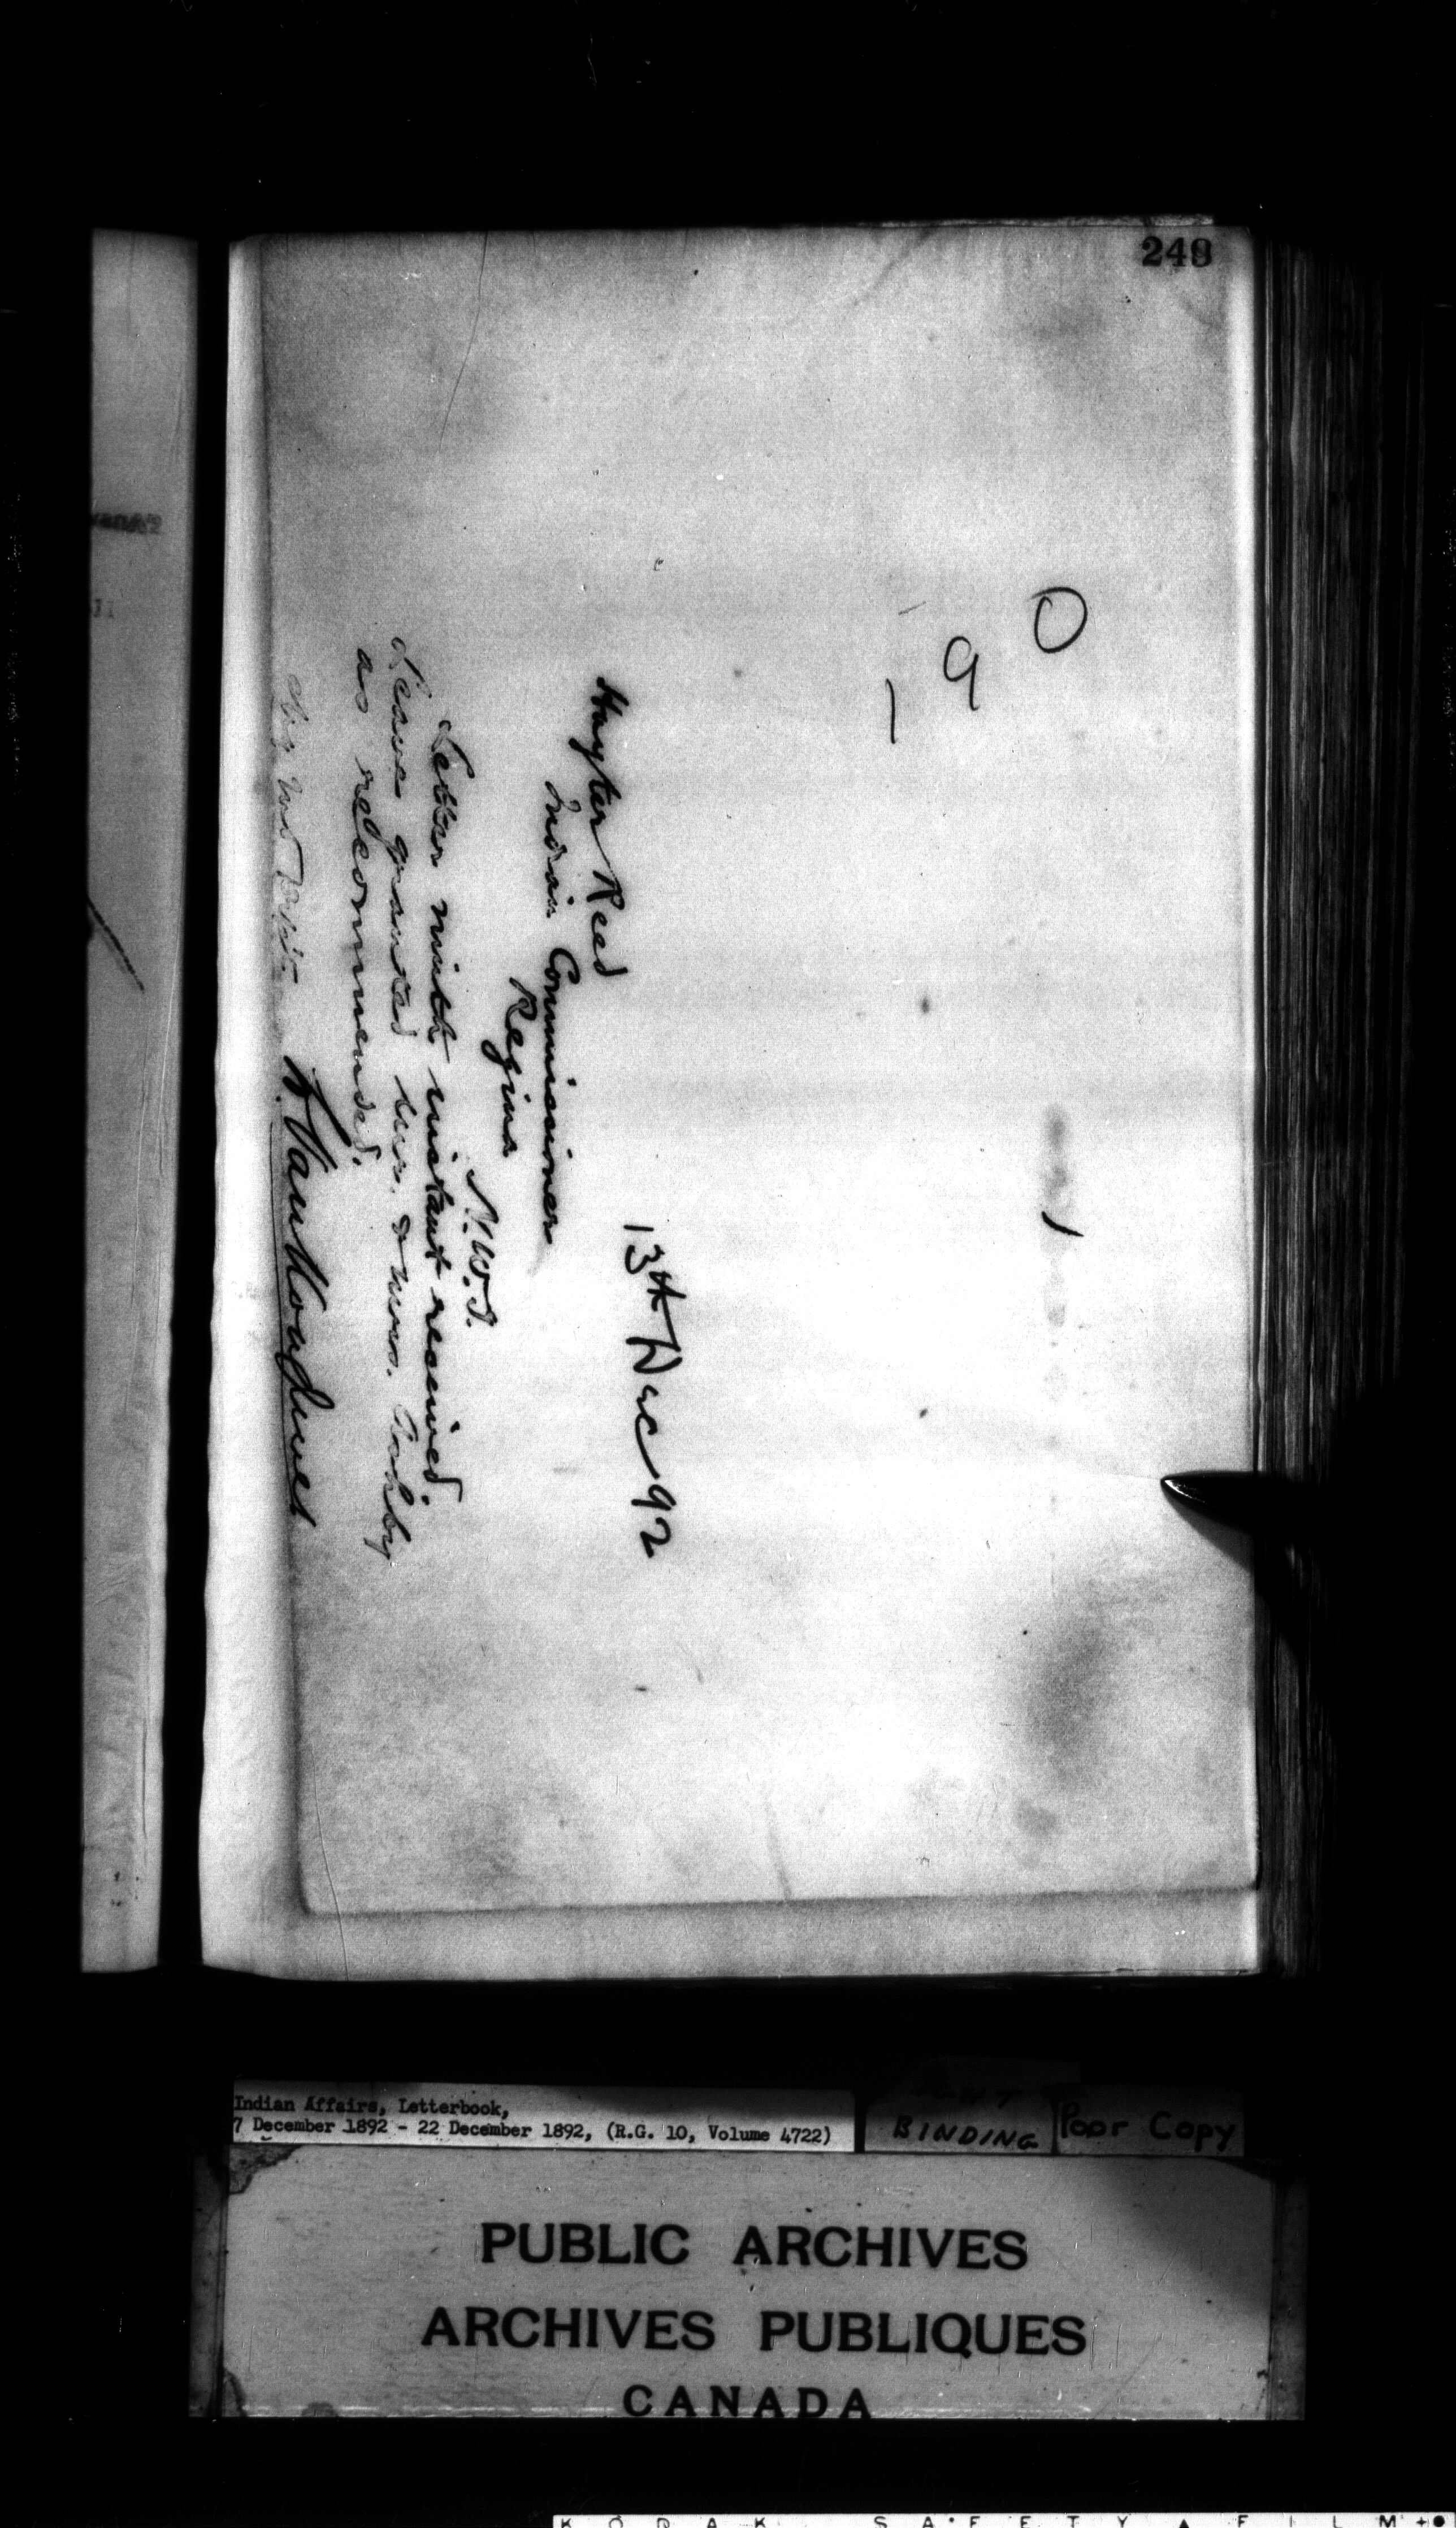 249
1 9 0
13th Dec 92
Hayter Reed
Indian Commissioner
Regina
N.W.T.
Letter ninth instant received.
Leave granted Mr. & Mrs.
as recommended.
L Vankoughnet
Indian Affairs, Letterbook,
7 December 1892 - 22 December 1892, (R.G. 10, Volume 4722)
BINDING
Poor Copy
PUBLIC ARCHIVES
ARCHIVES PUBLIQUES
CANADA
KODAK SAFETY FILM